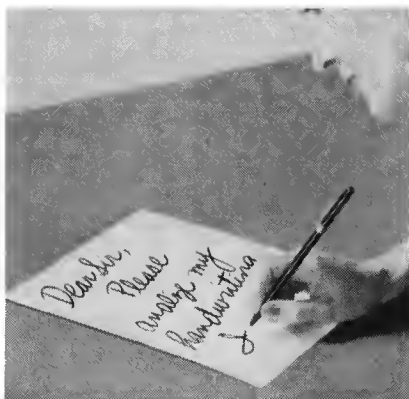 Dear Sir,
Please
analyze my
handwriting